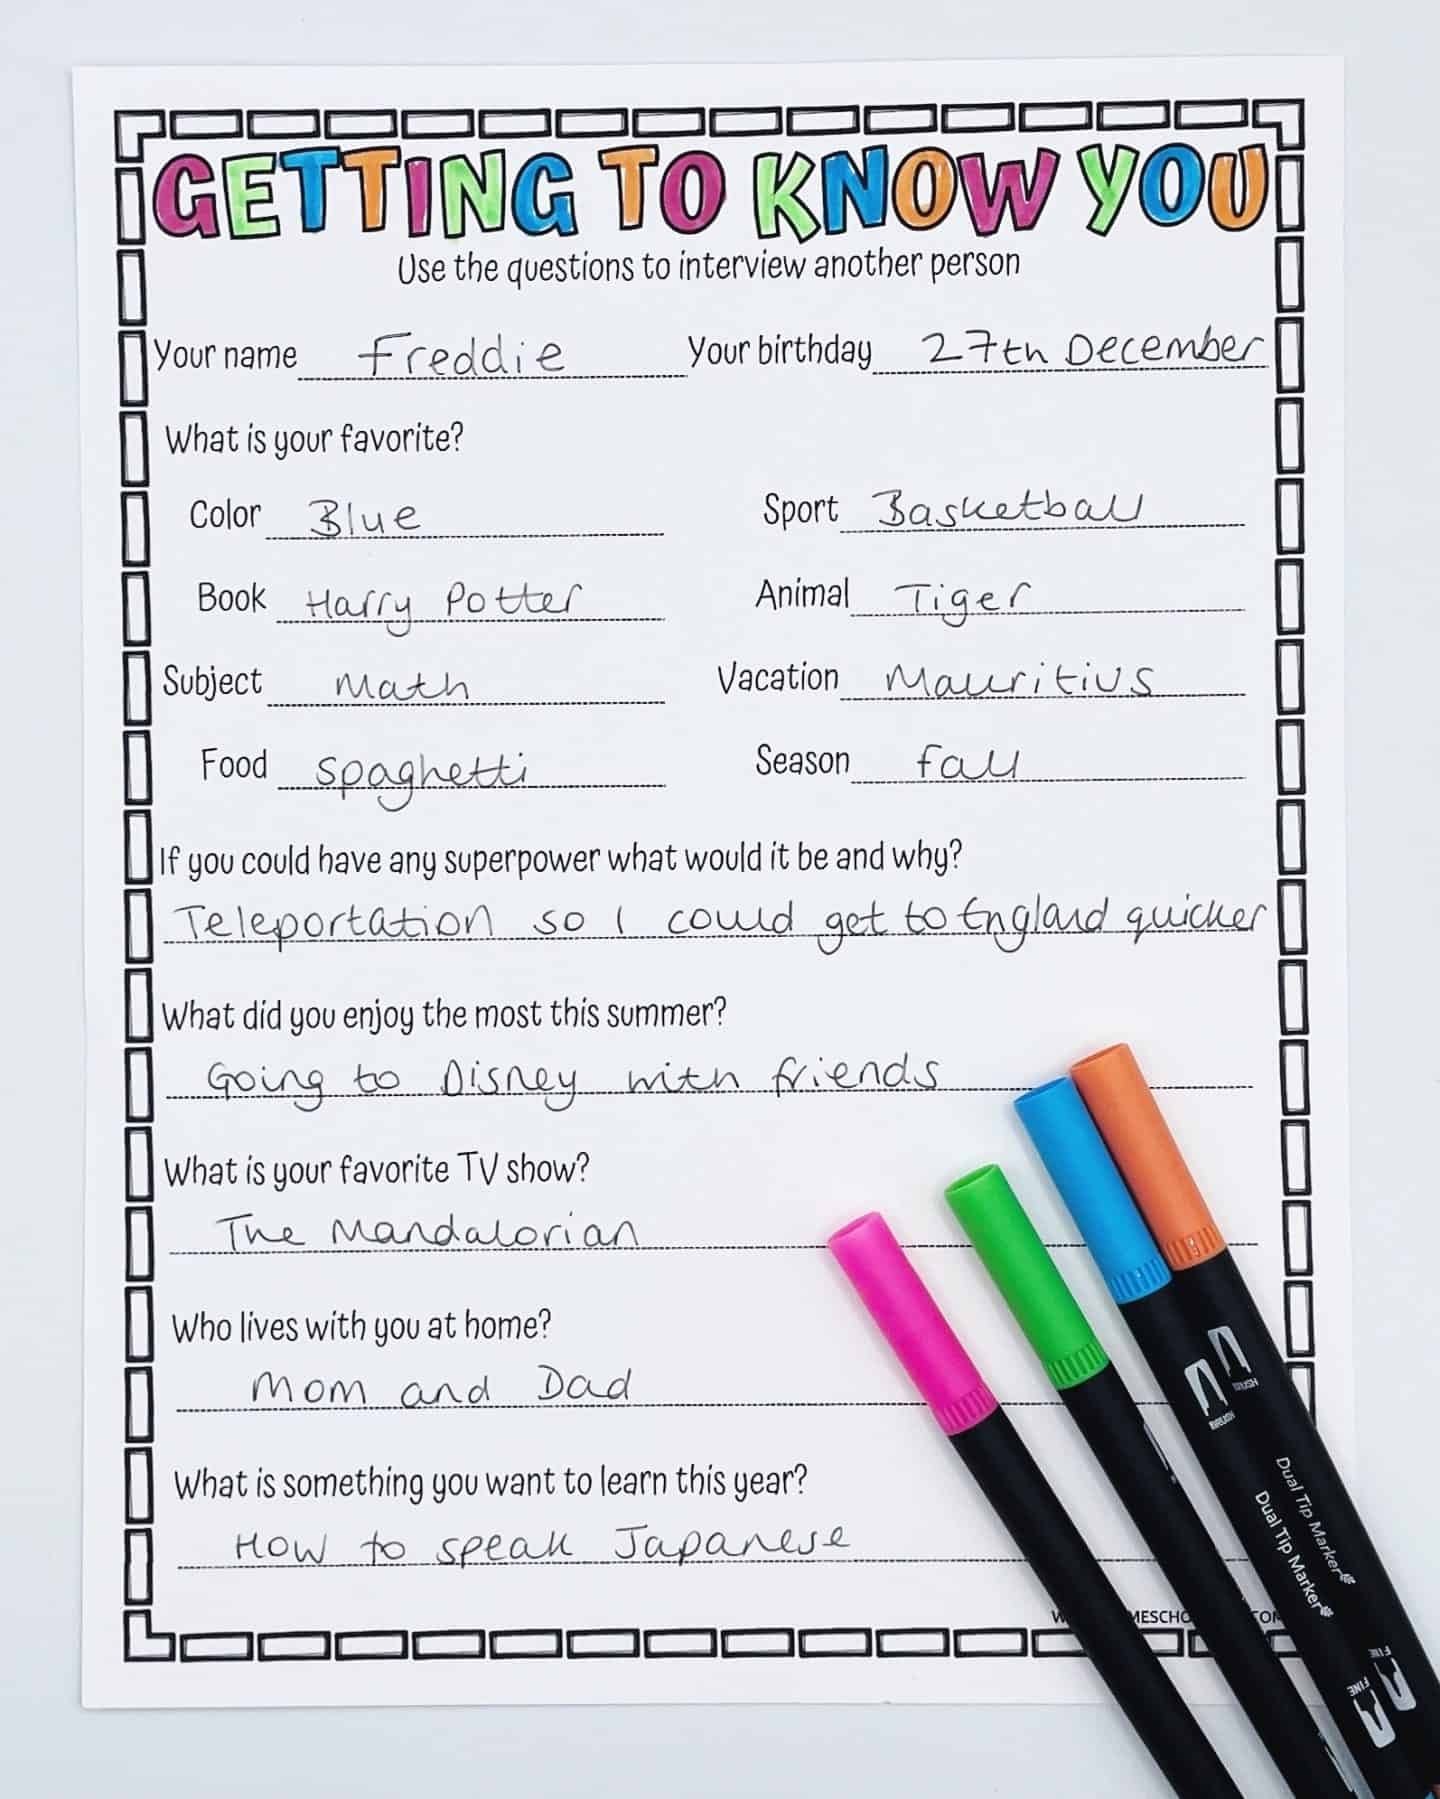 GETTING TO KNOW YOU
Use the questions to interview another person
Your name Freddie Your birthday 27th December
What is your favorite?
Color Blue Sport Basketball
Book Harry Potter Animal Tiger
Subject Math Vacation Mauritius
Food spaghetti Season fall
If you could have any superpower what would it be and why?
Teleportation so I could get to England quicker
What did you enjoy the most this summer?
Going to Disney with friends
What is your favorite TV show?
The Mandalorian
Who lives with you at home?
Mom and Dad
What is something you want to learn this year?
How to speak Japanese
BRUSH
BRUSH
Dual Tip Marker
Dual Tip Marker
FINE
FINE